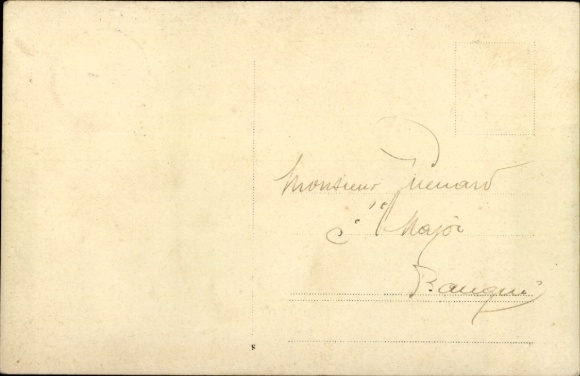 Monsieur Guenard
Major
Bangui
8